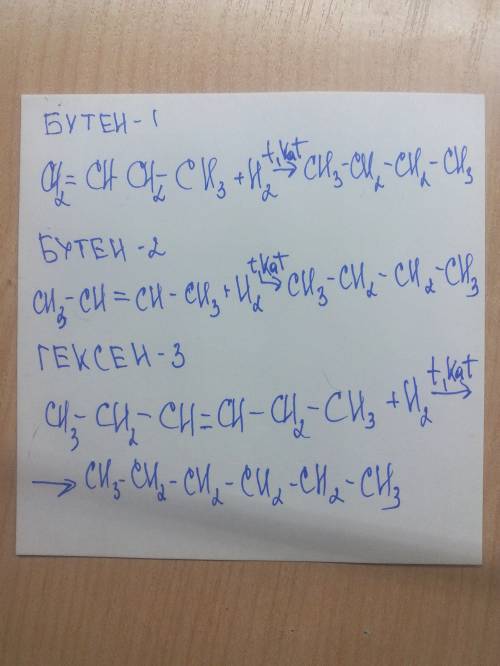 БУТЕН-1
CH₂=CH CH₂-CH₃+H₂ t,kat→ CH₃-CH₂-CH₂-CH₃
БУТЕН-2
CH₃-CH=CH-CH₃+H₂ t,kat→ CH₃-CH₂-CH₂-CH₃
ГЕКСЕН-3
CH₃-CH₂-CH=CH-CH₂-CH₃+H₂ t,kat→
→ CH₃-CH₂-CH₂-CH₂-CH₂-CH₃